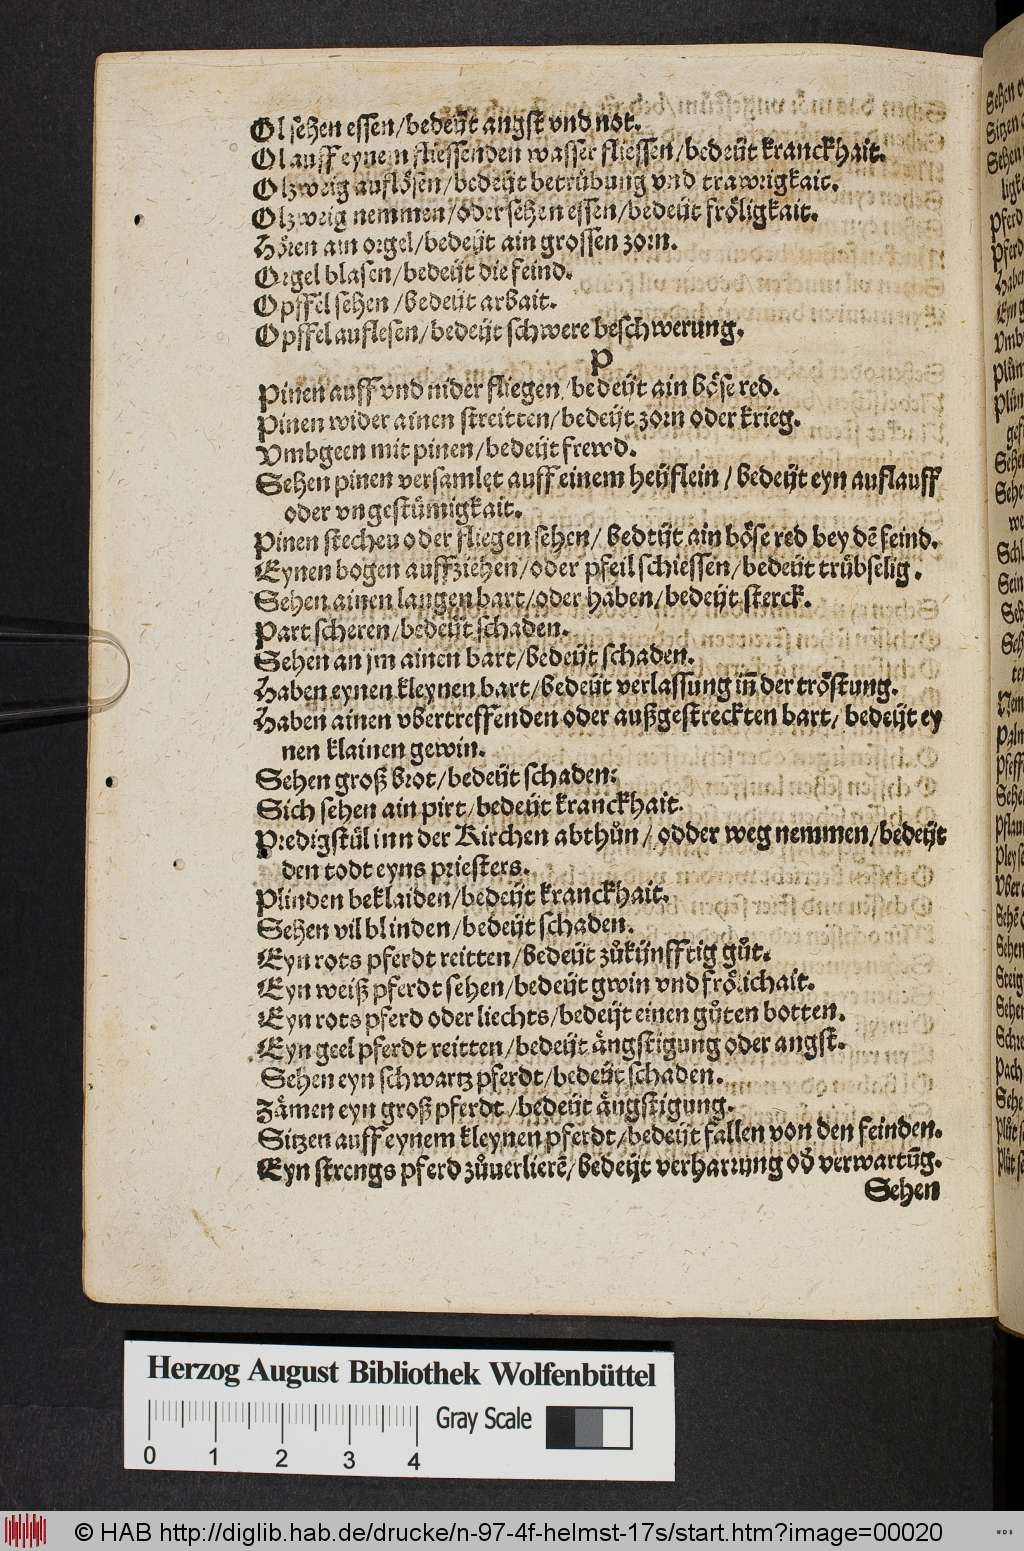 Ol sehen essen/bedeüt angst vnd not.
Ol auff eynem fliessenden wasser fliessen/bedeüt kranckhait.
Olzweig auflösen/bedeüt betrübung vnd trawrigkait.
Olzweig nemmen/oder sehen essen/bedeüt fröligkait.
Hören ain orgel/bedeüt ain grossen zorn.
Orgel blasen/bedeüt die feind.
Opffel sehen/bedeüt arbait.
Opffel auflesen/bedeüt schwere beschwerung.
P
Pinen auff vnd nider fliegen/bedeüt ain böse red.
Pinen wider ainen streitten/bedeüt zorn oder krieg.
Vmbgeen mit pinen/bedeüt frewd.
Sehen pinen versamlet auff einem heüflein/bedeüt eyn auflauff
oder vngestümigkait.
Pinen stecheu oder fliegen sehen/bedtüt ain böse red bey dē feind.
Eynen bogen auffziehen/oder pfeil schiessen/bedeüt trübselig.
Sehen ainen langen bart/oder haben/bedeüt sterck.
Part scheren/bedeüt schaden.
Sehen an jm ainen bart/bedeüt schaden.
Haben eynen kleynen bart/bedeüt verlassung iñ der tröstung.
Haben ainen vbertreffenden oder außgestreckten bart/bedeüt ey
nen klainen gewin.
Sehen groß brot/bedeüt schaden:
Sich sehen ain pirt/bedeüt kranckhait.
Predigstůl inn der Kirchen abthůn/odder weg nemmen/bedeüt
den todt eyns priesters.
Plinden beklaiden/bedeüt kranckhait.
Sehen vil blinden/bedeüt schaden.
Eyn rots pferdt reitten/bedeüt zůkünfftig gůt.
Eyn weiß pferdt sehen/bedeüt gwin vnd frölichait.
Eyn rots pferd oder liechts/bedeüt einen gůten botten.
Eyn geel pferdt reitten/bedeüt ängstigung oder angst.
Sehen eyn schwartz pferdt/bedeüt schaden.
Zämen eyn groß pferdt/bedeüt ängstigung.
Sitzen auff eynem kleynen pferdt/bedeüt fallen von den feinden.
Eyn strengs pferd zůuerlierē/bedeüt verharrung od' verwartūg.
Sehen
Herzog August Bibliothek Wolfenbüttel
Gray Scale
0 1 2 3 4
© HAB http://diglib.hab.de/drucke/n-97-4f-helmst-17s/start.htm?image=00020